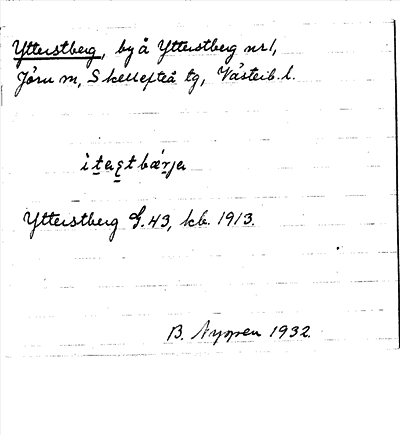 Ytterstberg, by å Ytterstberg nr 1,
Jörn sn, Skellefteå tg, Västerb. l.
Ytterstberg G. 43, kb. 1913.
B. Nyppen 1932.